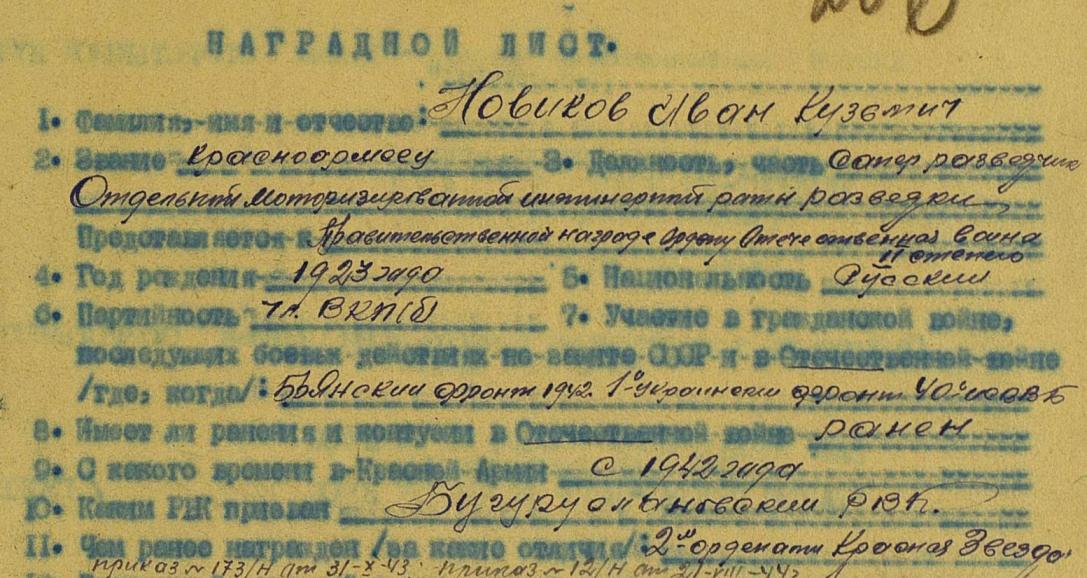 НАГРАДНОЙ ЛИСТ.
1. Фамилия, имя и отчество: Новиков Иван Кузьмич
2. Звание красноармеец 3. Должность, часть Сапер разведчик
Отдельной моторизированной инженерной роты разведки
Представляется к Правительственной награде ордену Отечественная война
II степени
4. Год рождения 1923 года 5. Национальность Русский
6. Партийность чл. ВКП(б) 7. Участие в гражданской войне,
последующих боевых действиях по защите СССР и в Отечественной войне
/где, когда/: Брянский фронт 1942. 1й Украинский фронт 40
8. Имеет ли ранения и контузии в Отечественной войне ранен
9. С какого времени в Красной Армии с 1942 года
10. Каким РВК призван Бугурусланговский РВК.
11. Чем ранее награжден /за какие отличия/: 2мя орденами Красная Звезда
приказ № 173/н от 31-X-43. приказ № 12/н от